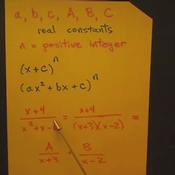 a, b, c, A, B, C
real constants
n = positive integer
(x+c)^n
(ax²+bx+c)^n
x+4 / x²+x-6 = x+4 / (x+3)(x-2) =
A / x+3 + B / x-2